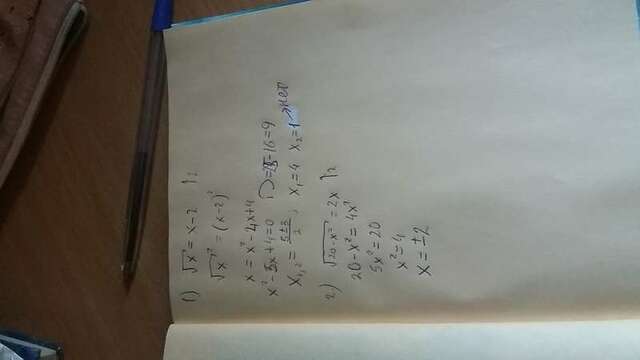 1) √x = x-2 ↑2
√x² = (x-2)²
x = x²-4x+4
x²-5x+4=0 D=25-16=9
x₁,₂ = (5±3)/2, x₁=4 x₂=1 → нет
2) √(20-x²) = 2x ↑2
20-x² = 4x²
5x²=20
x²=4
x=±2